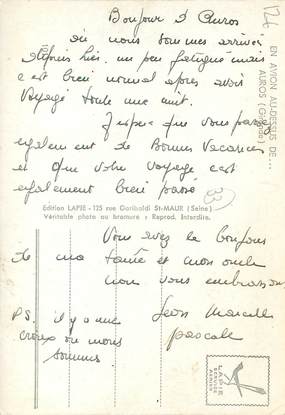 Bonjour d'Auros
où nous sommes arrivés
depuis hier, un peu fatigué mais
c'est bien normal après avoir
voyagé toute une nuit.
J'espère que vous passez
également de Bonnes Vacances
et que votre voyage c'est
également bien passé
33
Edition LAPIE - 125 rue Garibaldi St-MAUR (Seine)
Véritable photo au bromure : Reprod. Interdite.
Vous avez le bonjour
de ma tante et mon oncle
nous vous embrassons
Jean Marcelle
pascale
PS. il y a une
croix où nous
sommes
124
EN AVION AU-DESSUS DE...
AUROS (Gironde)
LAPIE
SERVICE
AERIEN